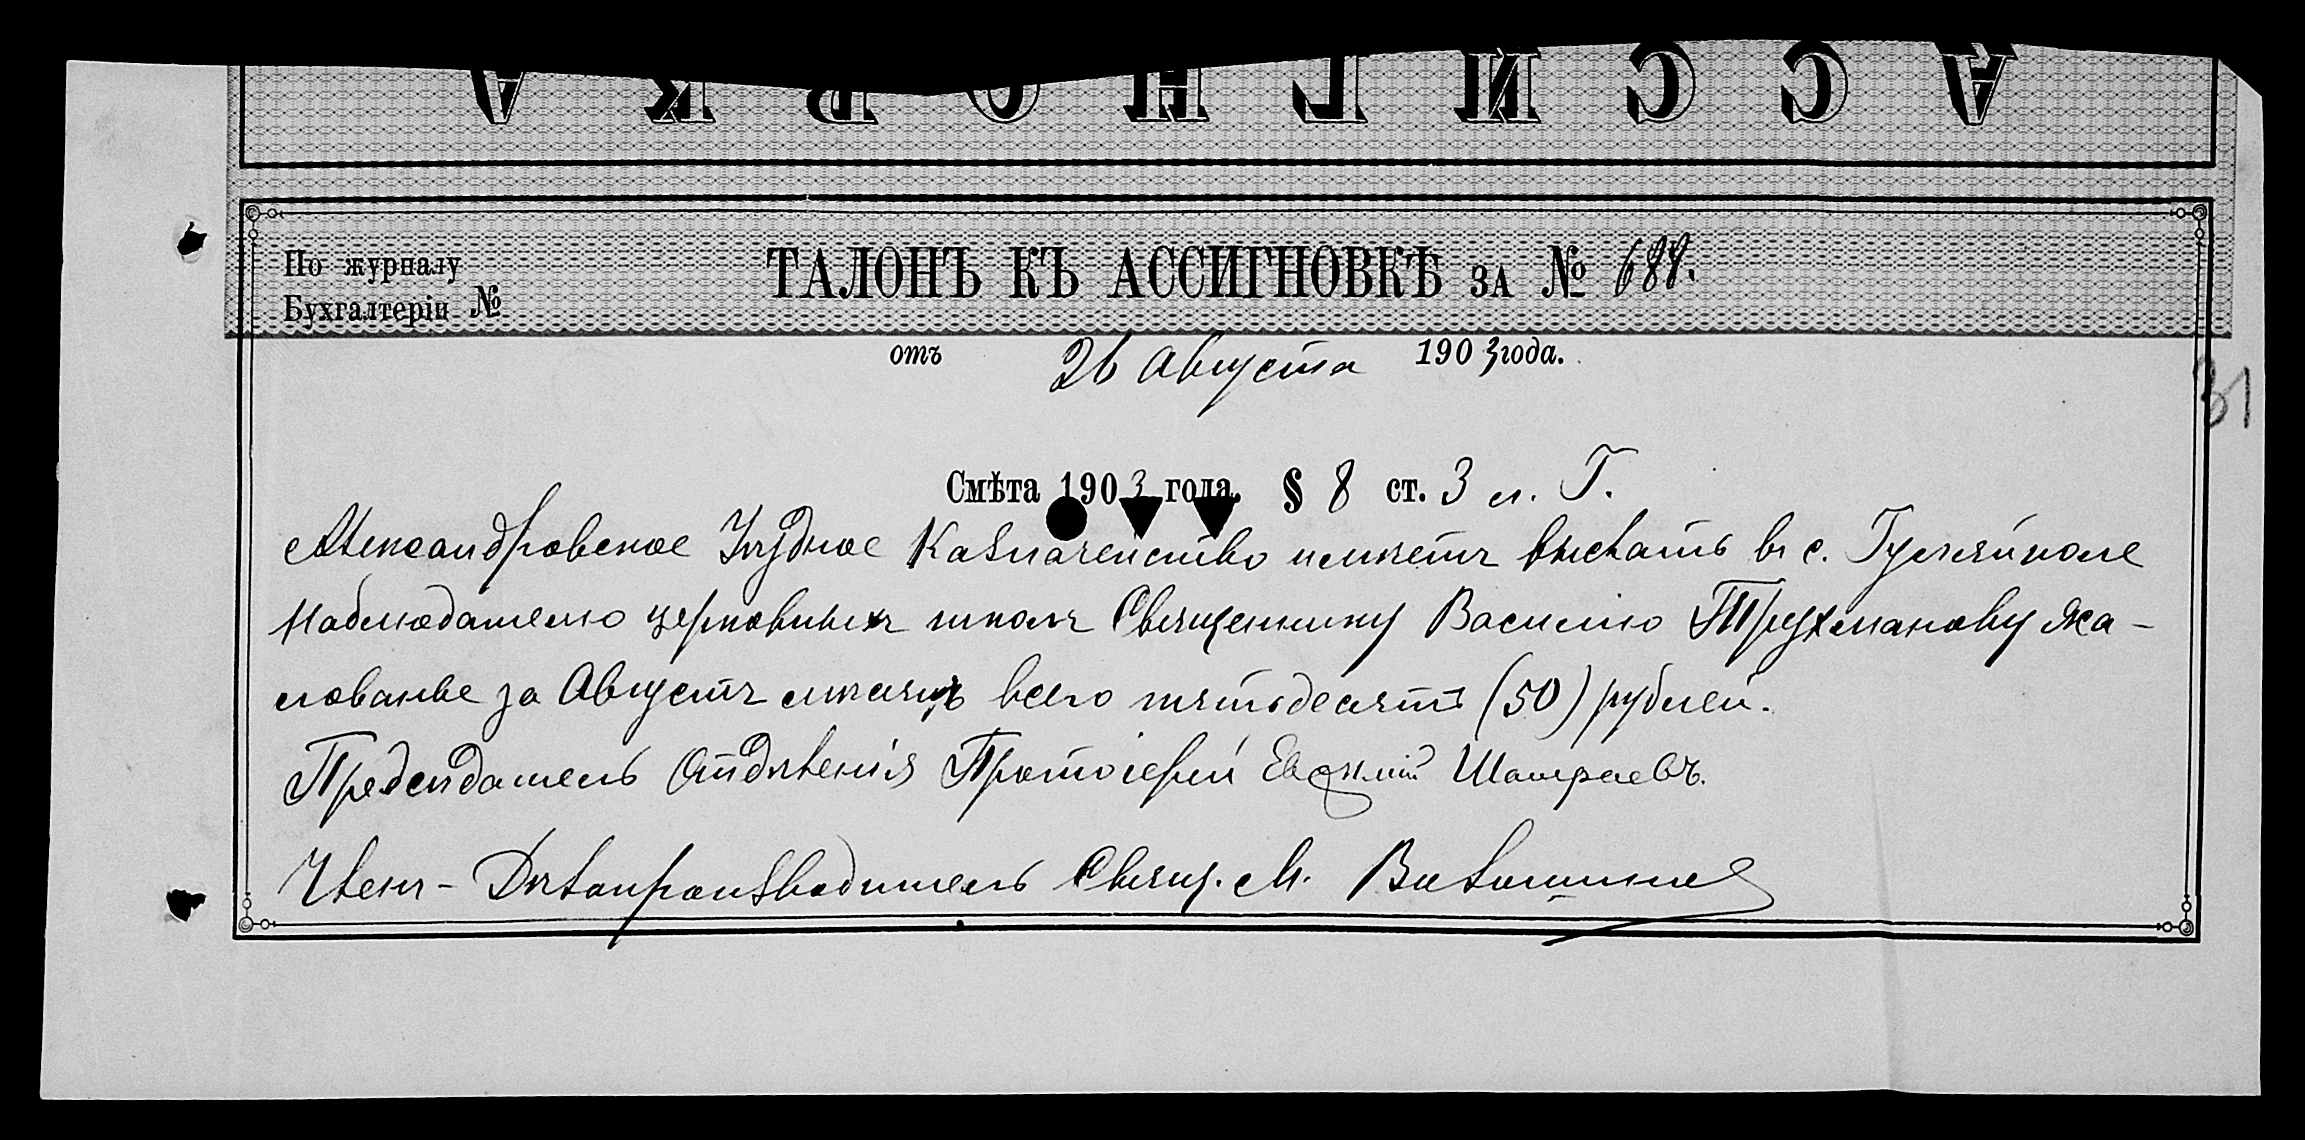 АССИГНОВКА
По журналу
Бухгалтеріи №
ТАЛОНЪ КЪ АССИГНОВКѢ ЗА № 688.
отъ 26 Августа 1903 года.
31
Смѣта 1903 года. § 8 ст. 3 л. Г.
Александровское Уѣздное Казначейство имѣетъ выслать въ с. Гуляйполе
Наблюдателю церковныхъ школъ Священнику Василію Трухманову жа-
лованье за Августъ мѣсяцъ всего пятьдесятъ (50) рублей.
Предсѣдатель Отдѣленія Протоіерей Евѳимій
Членъ-Дѣлопроизводитель Свящ. М.